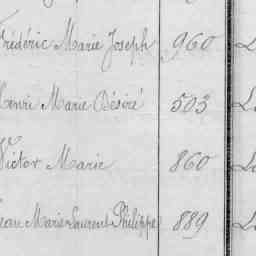 Frédéric Marie Joseph 960
Henri Marie Désiré 503
Victor Marie 860
Jean Marie Laurent Philippe 889